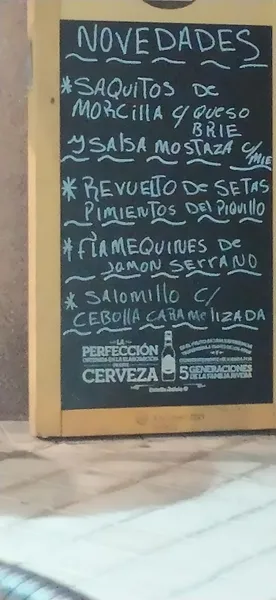 NOVEDADES
* SAQUITOS DE
MORCILLA C/ QUESO
BRIE
Y SALSA MOSTAZA C/
MIE
* REVUELTO DE SETAS
PIMIENTOS DEL PIQUILLO
* FLAMEQUINES DE
JAMON SERRANO
* SALOMILLO C/
CEBOLLA CARAMELIZADA
LA
PERFECCIÓN
CERVEZA
5 GENERACIONES
DE LA FAMILIA RIVERA